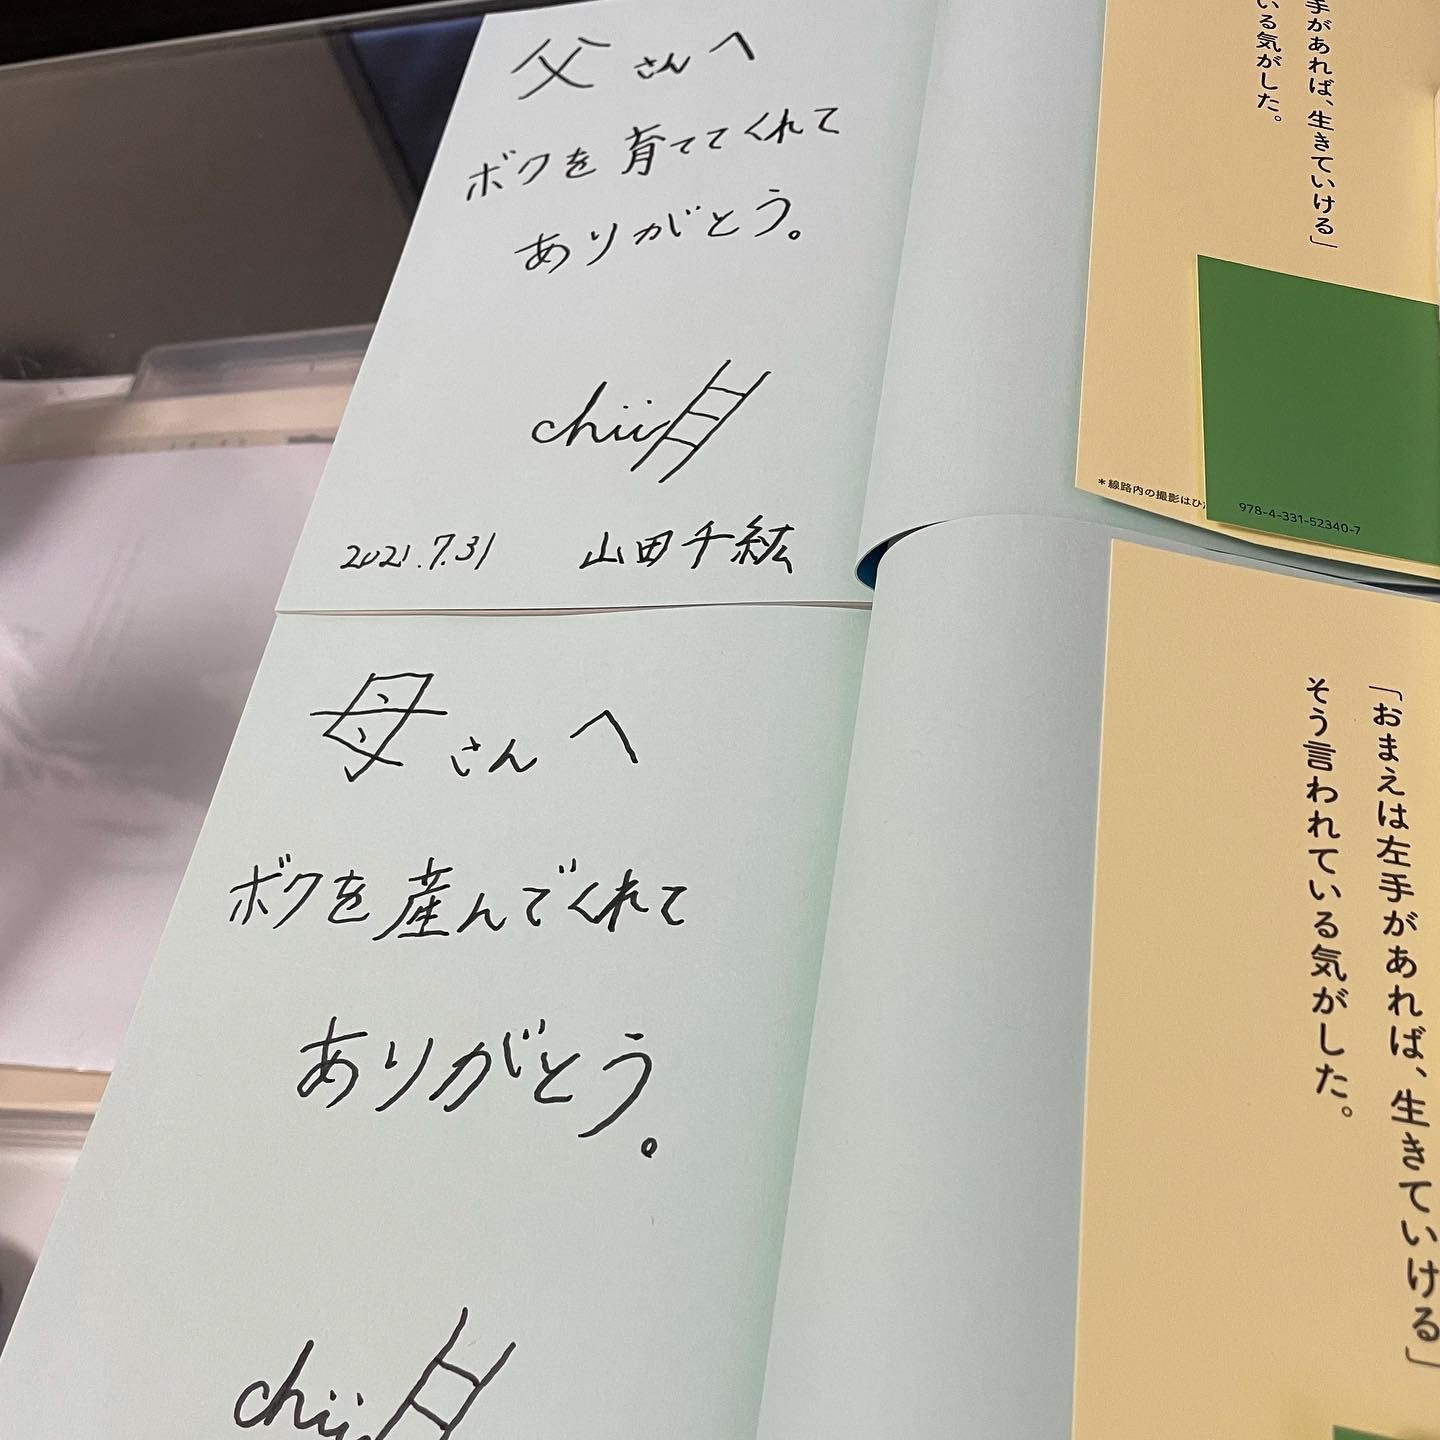 父さんへ
ボクを育ててくれて
ありがとう。
chii
2021.7.31 山田千紘
手があれば、生きていける」
いる気がした。
＊線路内の撮影はひ
978-4-331-52340-7
母さんへ
ボクを産んでくれて
ありがとう。
chii
「おまえは左手があれば、生きていける」
そう言われている気がした。